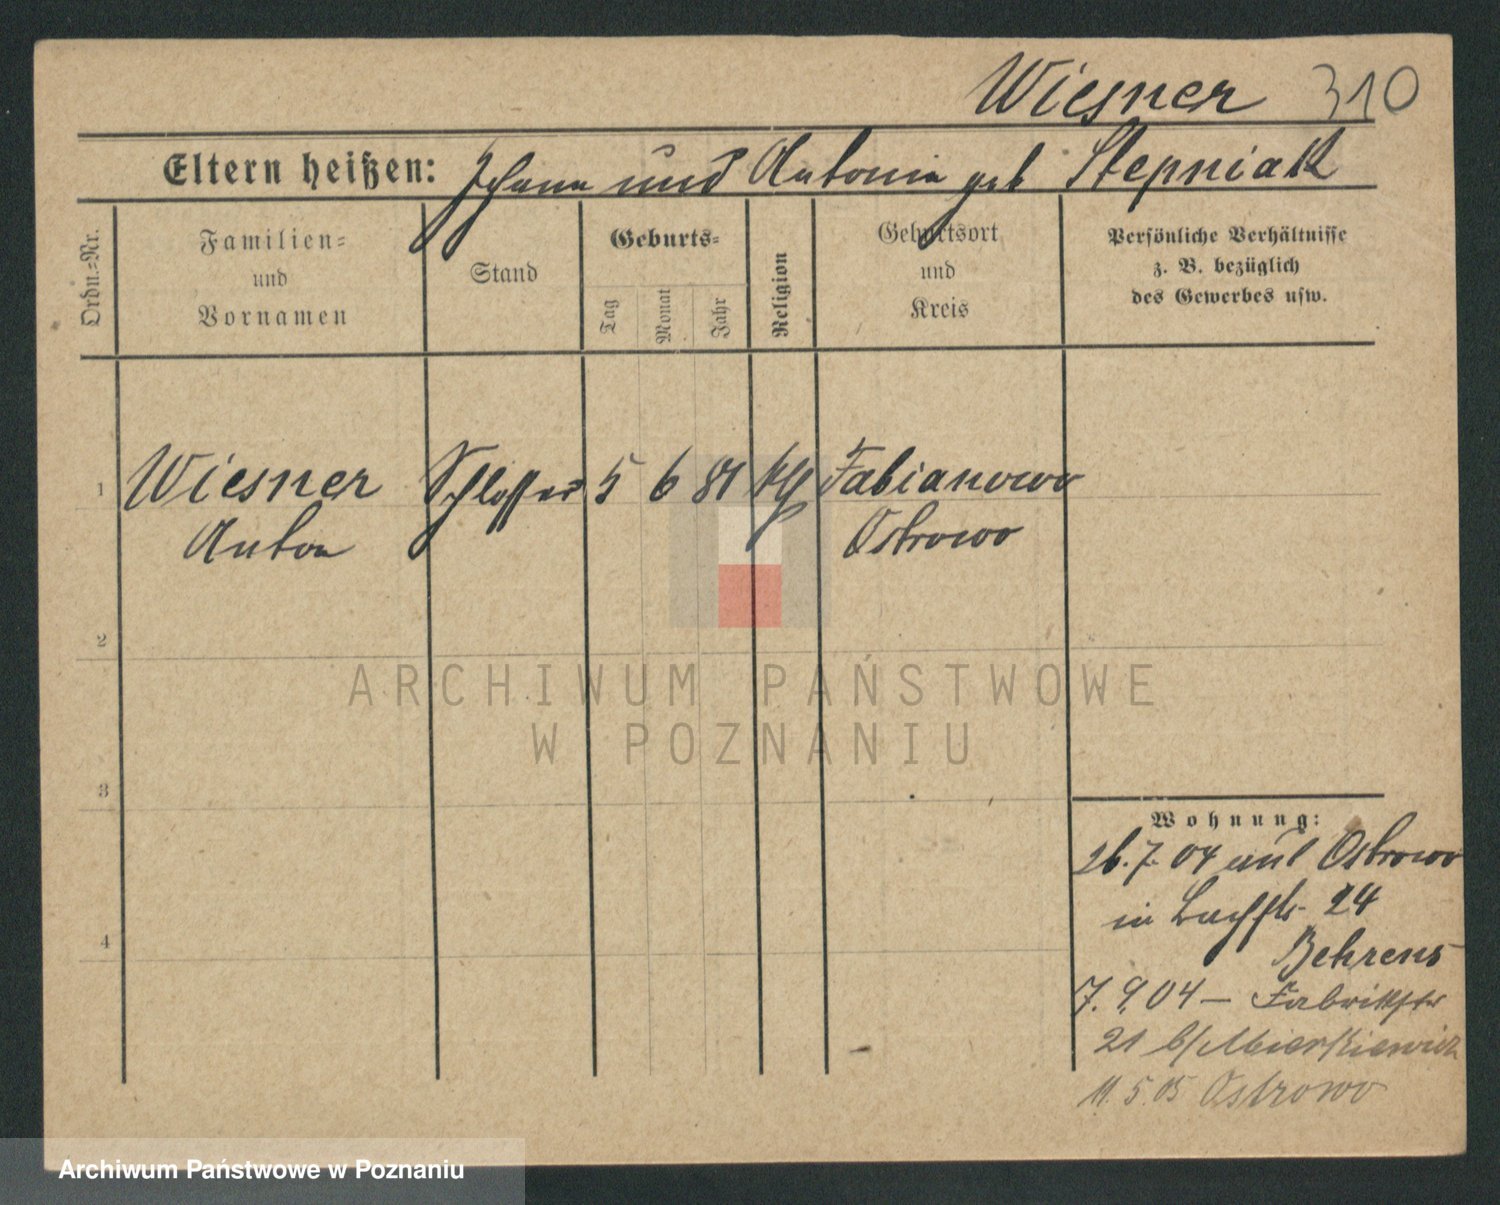 Wiesner 310
Eltern heißen: Johann und Antonia geb Stepniak
Ordn.=Nr.
Familien=
und
Vornamen
Stand
Geburts=
Tag
Monat
Jahr
Religion
Geburtsort
und
Kreis
Persönliche Verhältnisse
z. B. bezüglich
des Gewerbes usw.
1 Wiesner Schlosser 5 6 81 kth Fabianowo
Anton Ostrowo
2
3
4
Wohnung:
26.7.04 aus Ostrowo
in Bachstr. 24
Behrens
7.9.04 — Fabrikstr
21 b/Mierkiewicz
11.5.05 Ostrowo
ARCHIWUM PAŃSTWOWE
W POZNANIU
Archiwum Państwowe w Poznaniu